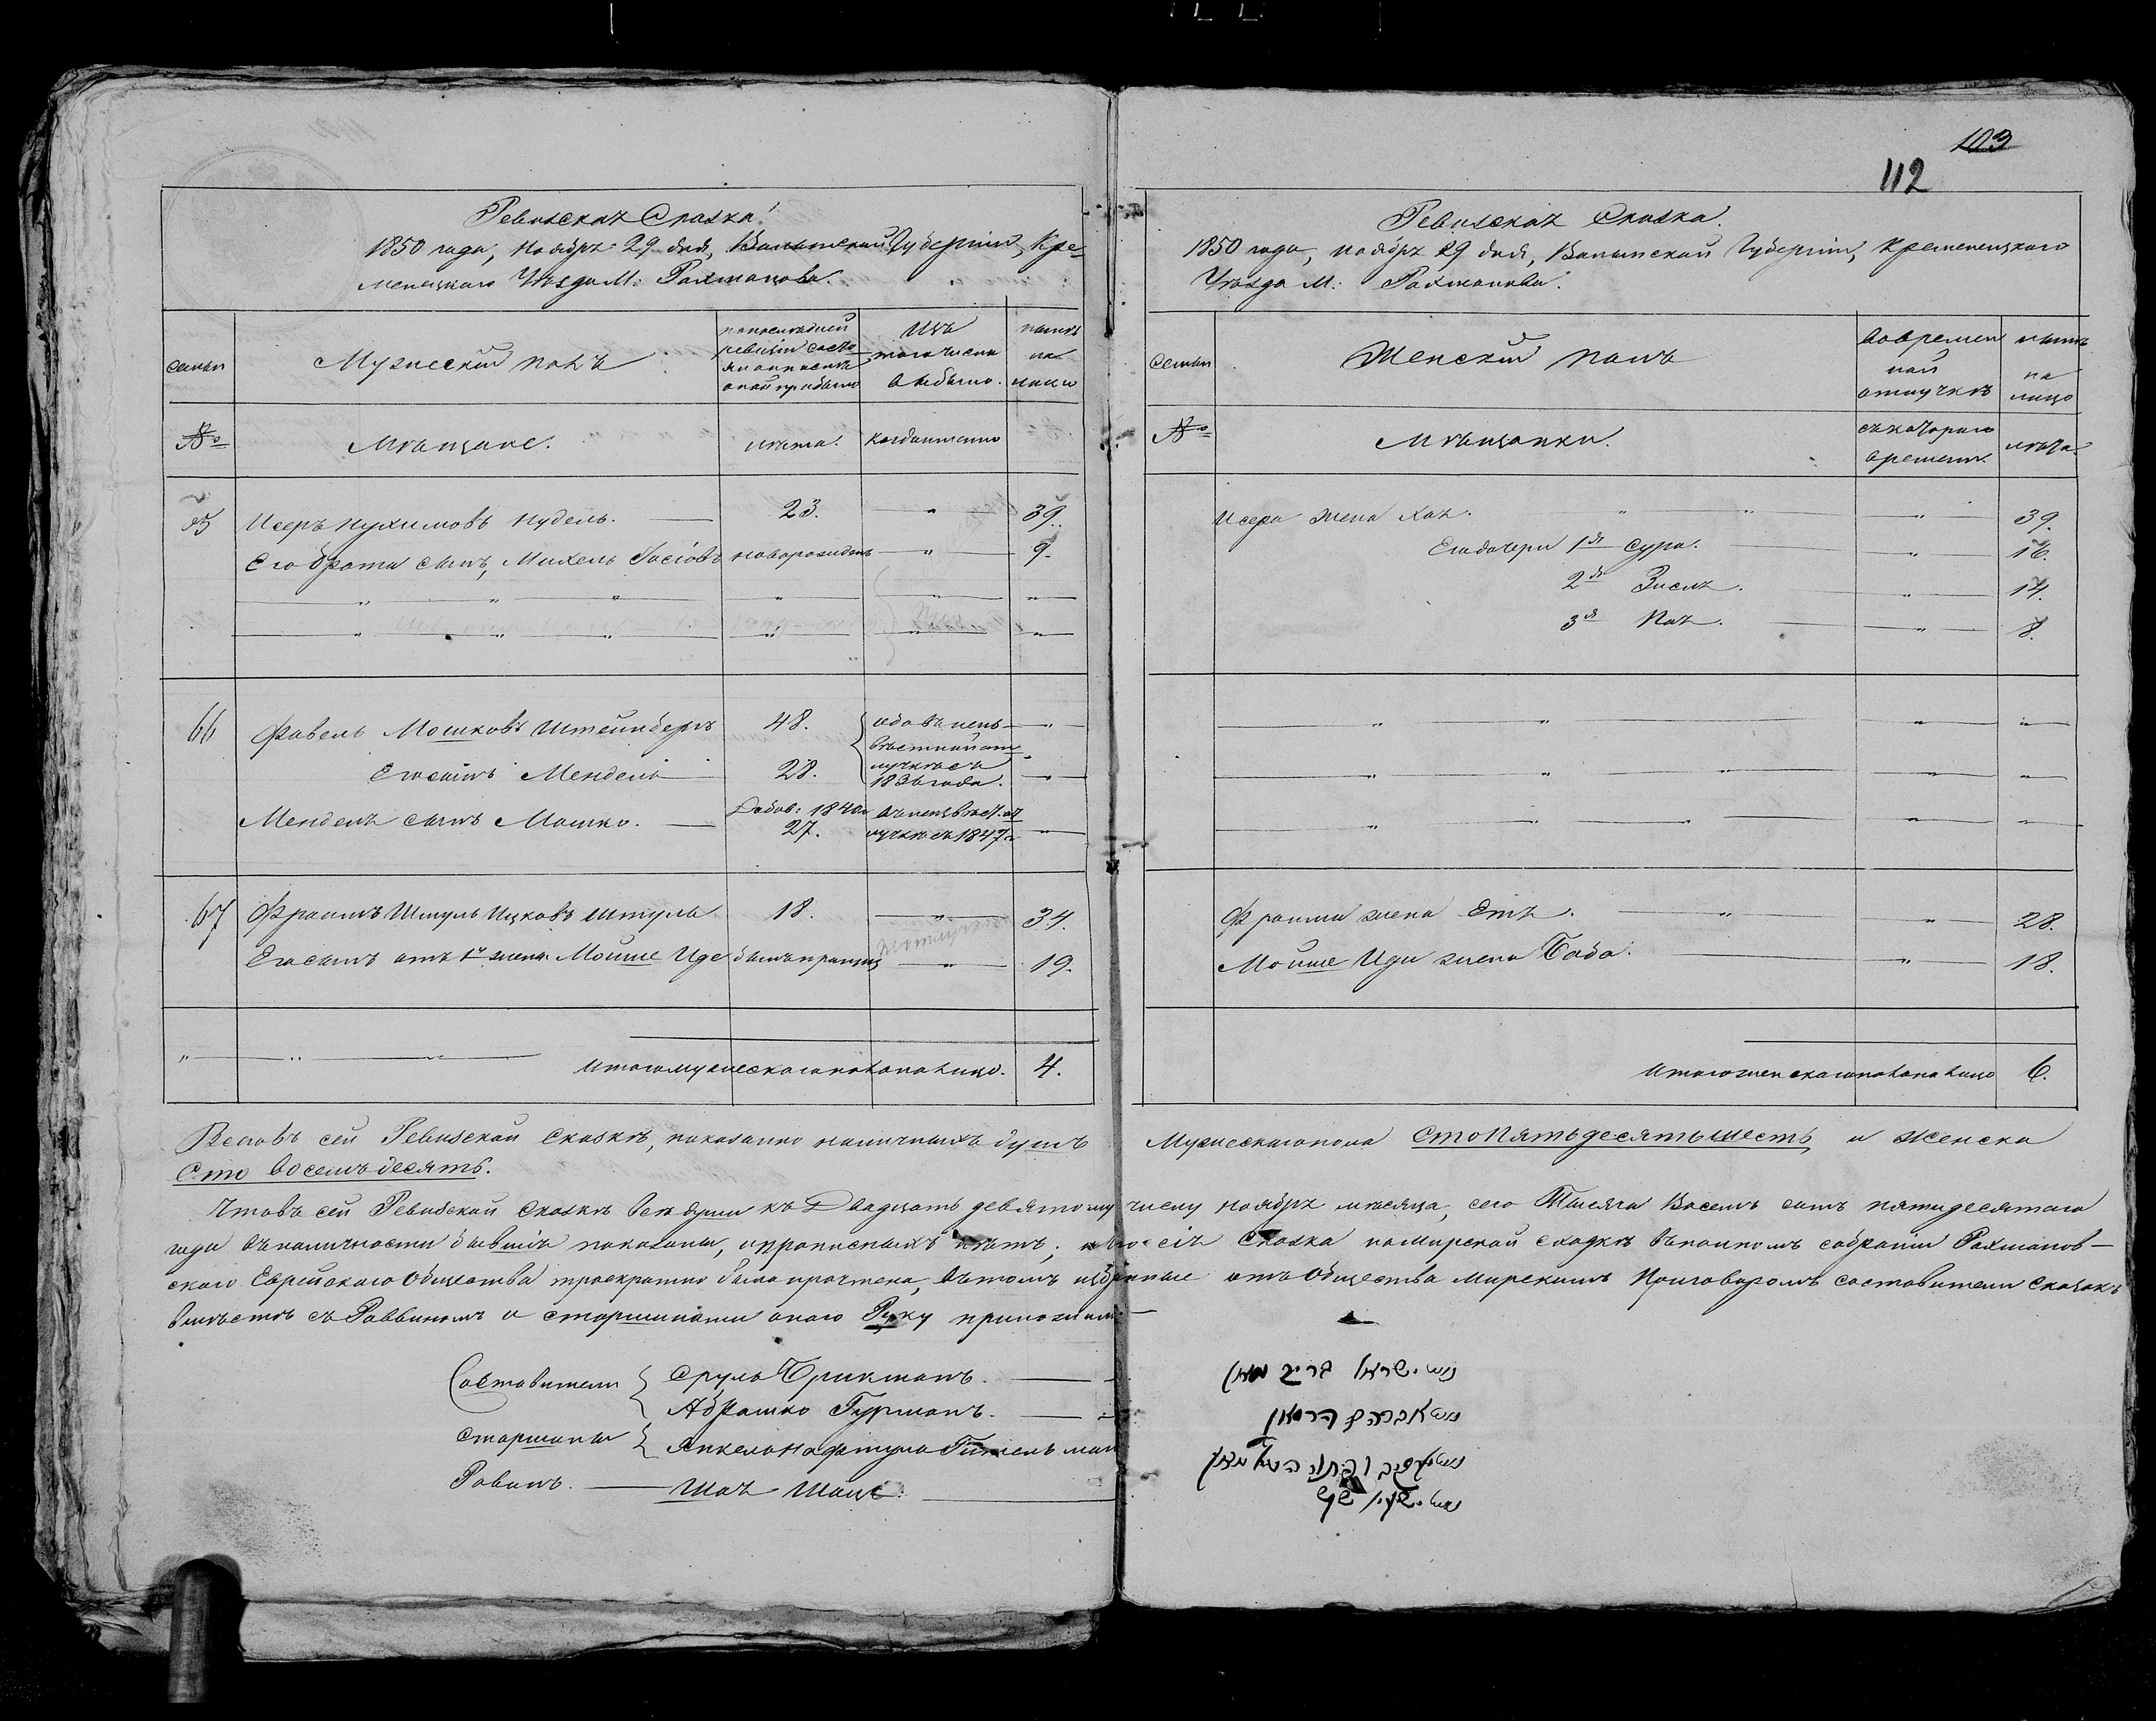 103
112
Ревизская Сказка.
1850 года, ноября 29 дня, Волынской Губернии, Кре-
менецкаго Уезда М: Рахманова.
семьи
Мужеский полъ
по последней ревизии состояло и после оной прибыло
Изъ того числа выбыло.
ныне на лицо
№
Мѣщане.
лѣта.
когда именно
65
Исеръ Нухимовъ Нудель.
23.
"
39.
Его брата сынъ, Михель Іосіовъ
новорожденъ
"
9.
66
Фавель Мошковъ Штейнберъ
48.
оба въ неиз-
вѣстной от
лучкѣ съ
1836 года.
Его сынъ Мендель
28.
Менделя сынъ Мошко.
Добав: 1840 г
27.
въ неизвѣст. от
лучкѣ съ 1847 г
67
Фроимъ Шмуль Ицковъ Штуль
18.
"
34.
Его сынъ отъ 1й жены Мойше Иде
былъ пропущ
"
19.
Итого мужескаго пола на лицо.
4.
Ревизская Сказка.
1850 года, ноября 29 дня, Волынской Губернии, Кременецкаго
Уезда М: Рахманова.
семьи
Женский полъ
Во времен
ной
отлучкѣ
ныне
на
лицо
№
Мѣщанки.
съ котораго
времени.
лѣта.
Исера жена Хая.
"
39.
Его дочери 1я Сура.
"
16.
2я Зисля.
"
14.
3я Пая.
"
8.
Фроима жена Етя.
"
28.
Мойше Иди жена Баба.
"
18.
Итого женскаго пола на лицо
6.
Всего въ сей Ревизской Сказкѣ, показано наличныхъ душъ Мужескаго пола Сто Пятьдесятъ шесть, и Женска
Сто восемьдесятъ.
Что въ сей Ревизской Сказкѣ всѣ души къ Двадцать девятому числу ноября мѣсяца, сего Тысяча Восемь сотъ пятидесятаго
года въ наличности бывшія показаны, и прописныхъ нѣтъ; сія Сказка на мирской сходкѣ въ полномъ собраніи Рахманов-
скаго Еврейскаго Общества троекратно была прочтена, въ томъ избранные отъ Общества мирскимъ Приговоромъ составители сказокъ
вмѣстѣ съ Раввиномъ и старшинами онаго Руку приложили:
Составители { Сруль Брикманъ.
Абрашко Гурманъ.
Старшины { Янкель Нафтула Гительман
Равинъ. Шая Шайс.
נאום ישראל בריק מאן
נאום אברהם הרמאן